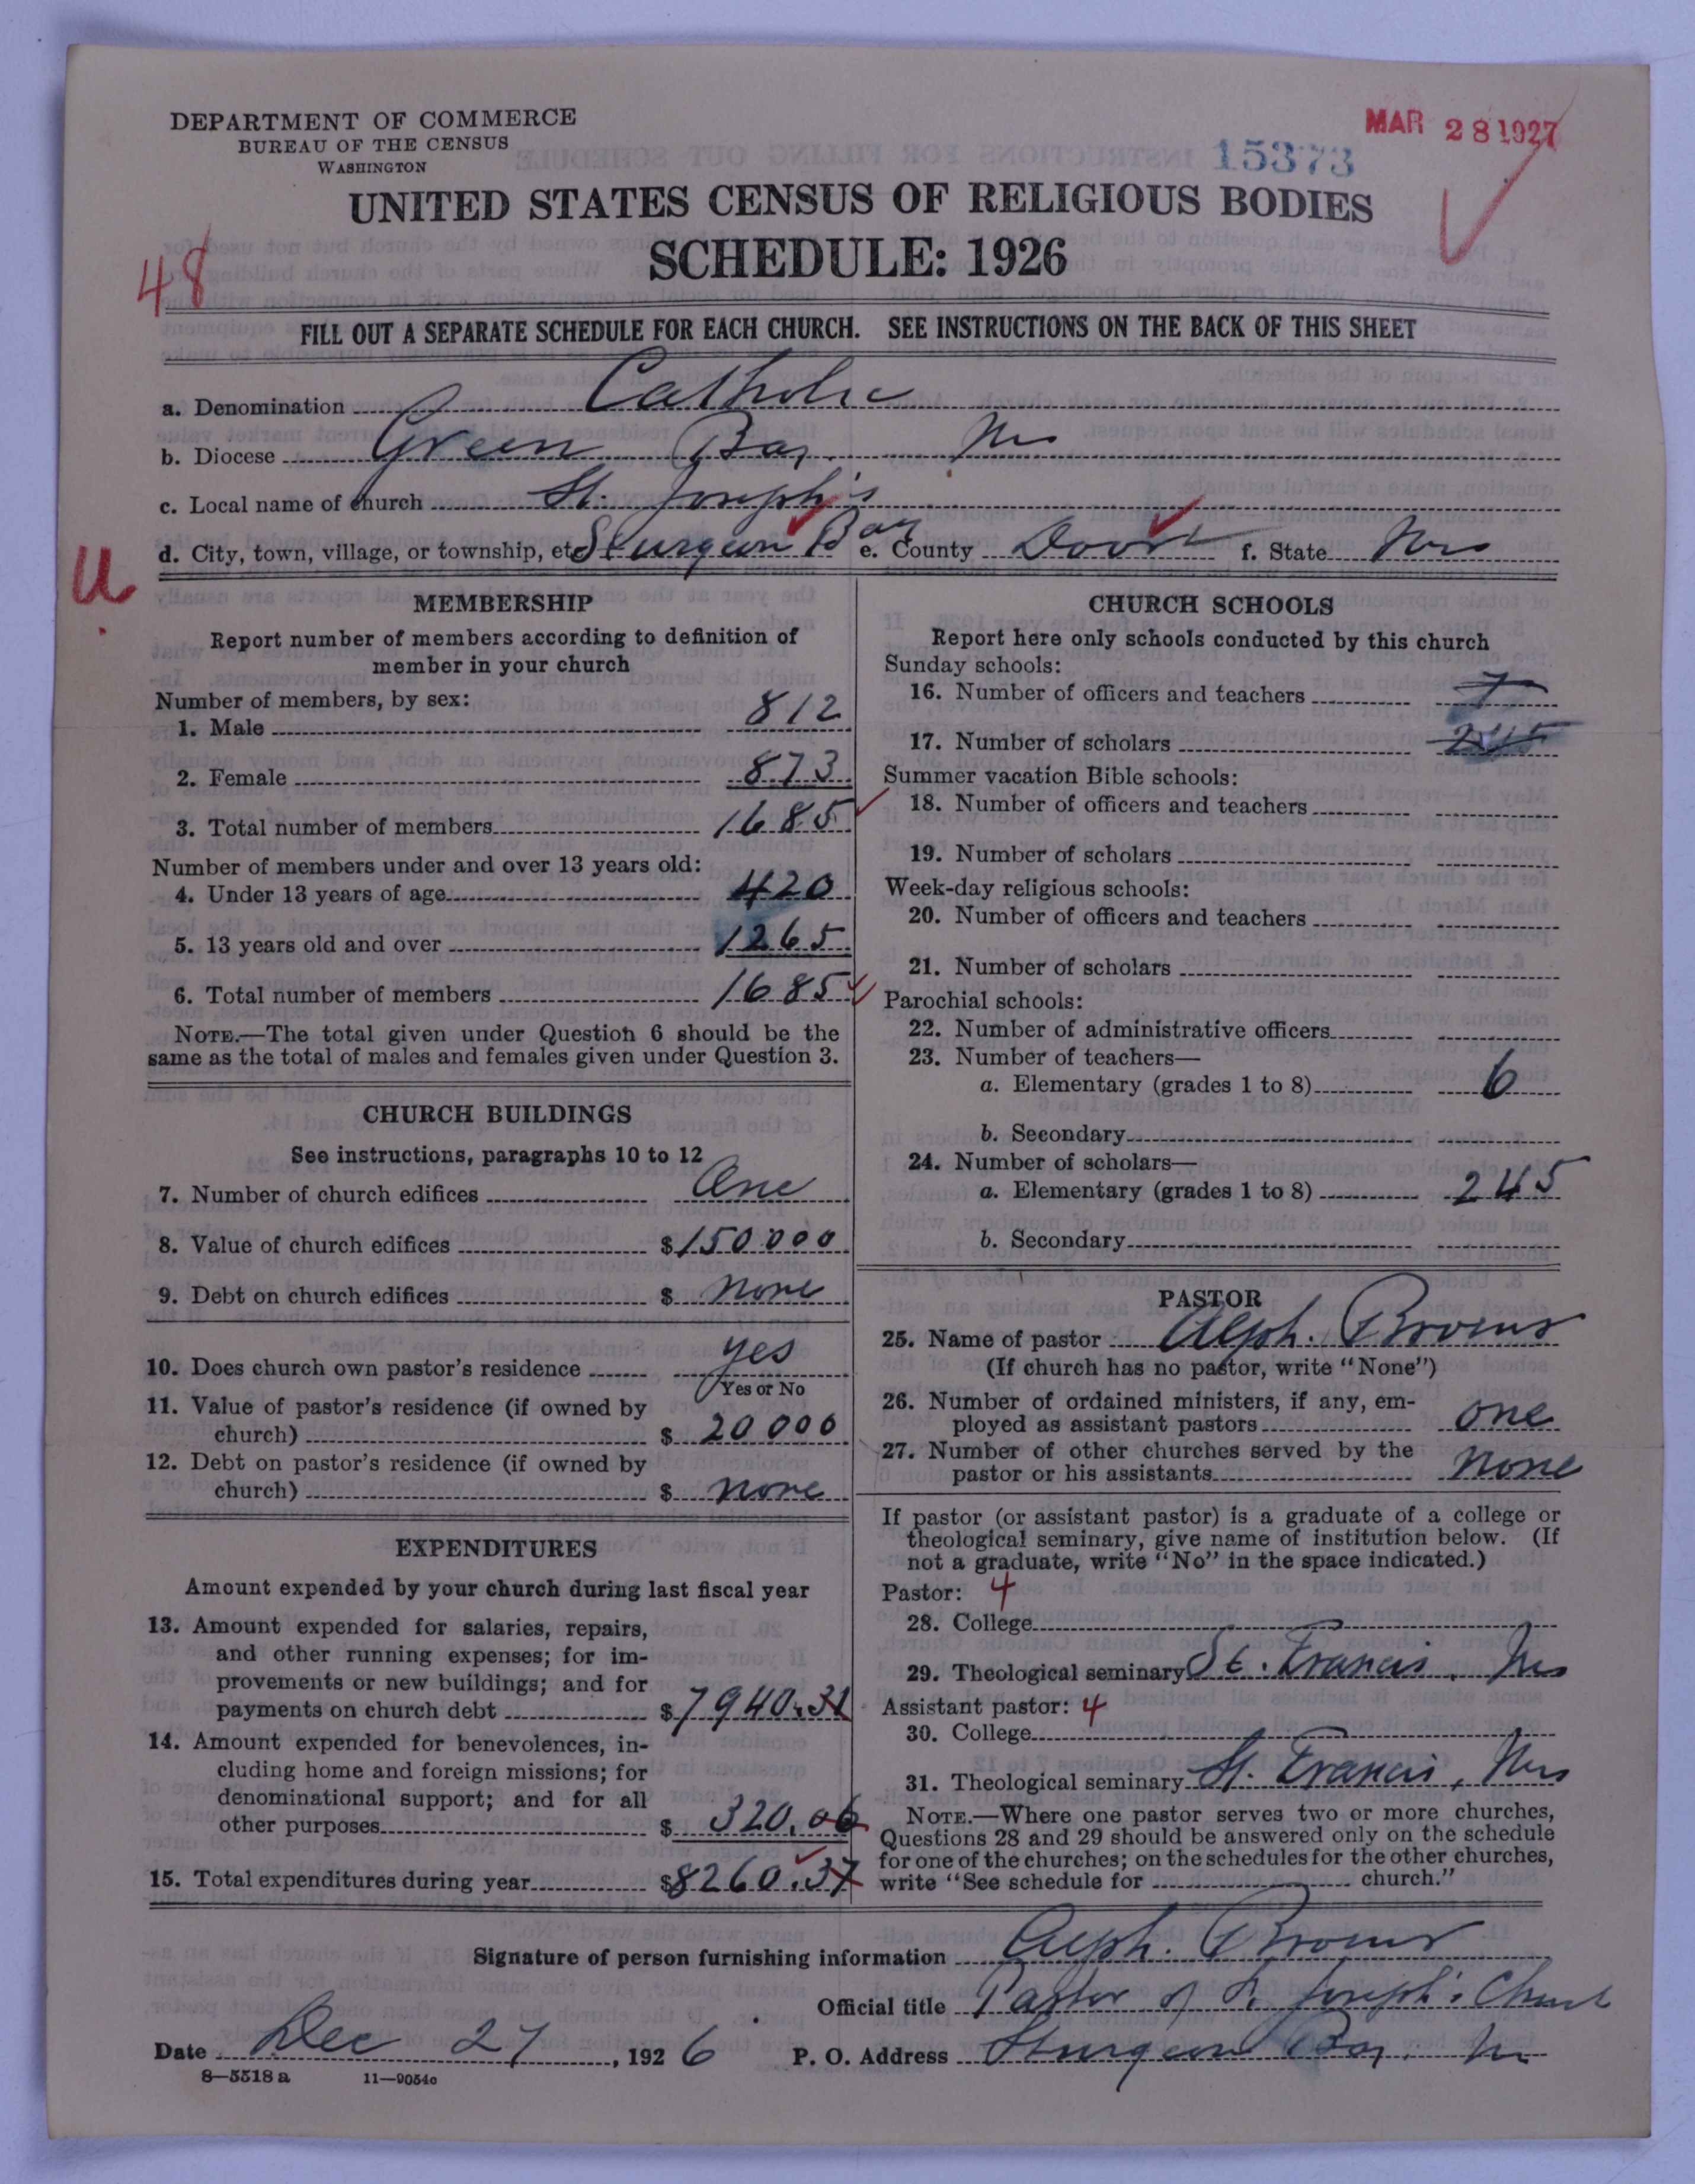 DEPARTMENT OF COMMERCE
BUREAU OF THE CENSUS
WASHINGTON
MAR 28 1927
15373
UNITED STATES CENSUS OF RELIGIOUS BODIES
SCHEDULE: 1926
48
FILL OUT A SEPARATE SCHEDULE FOR EACH CHURCH. SEE INSTRUCTIONS ON THE BACK OF THIS SHEET
a. Denomination Catholic
b. Diocese Green Bay. Wis
c. Local name of church St. Joseph's
d. City, town, village, or township, etc. Sturgeon Bay e. County Door f. State Wis
U
MEMBERSHIP
Report number of members according to definition of
member in your church
Number of members, by sex:
1. Male 812
2. Female 873
3. Total number of members 1685
Number of members under and over 13 years old:
4. Under 13 years of age 420
5. 13 years old and over 1265
6. Total number of members 1685
NOTE.—The total given under Question 6 should be the
same as the total of males and females given under Question 3.
CHURCH BUILDINGS
See instructions, paragraphs 10 to 12
7. Number of church edifices One
8. Value of church edifices $150000
9. Debt on church edifices $ none
10. Does church own pastor's residence yes
Yes or No
11. Value of pastor's residence (if owned by
church) $ 20000
12. Debt on pastor's residence (if owned by
church) $ none
EXPENDITURES
Amount expended by your church during last fiscal year
13. Amount expended for salaries, repairs,
and other running expenses; for im-
provements or new buildings; and for
payments on church debt $7940.31
14. Amount expended for benevolences, in-
cluding home and foreign missions; for
denominational support; and for all
other purposes $ 320.06
15. Total expenditures during year $8260.37
CHURCH SCHOOLS
Report here only schools conducted by this church
Sunday schools:
16. Number of officers and teachers 7
17. Number of scholars 245
Summer vacation Bible schools:
18. Number of officers and teachers
19. Number of scholars
Week-day religious schools:
20. Number of officers and teachers
21. Number of scholars
Parochial schools:
22. Number of administrative officers
23. Number of teachers—
a. Elementary (grades 1 to 8) 6
b. Secondary
24. Number of scholars—
a. Elementary (grades 1 to 8) 245
b. Secondary
PASTOR
25. Name of pastor Alph. Broens
(If church has no pastor, write "None")
26. Number of ordained ministers, if any, em-
ployed as assistant pastors one
27. Number of other churches served by the
pastor or his assistants none
If pastor (or assistant pastor) is a graduate of a college or
theological seminary, give name of institution below. (If
not a graduate, write "No" in the space indicated.)
Pastor: 4
28. College
29. Theological seminary St. Francis, Wis
Assistant pastor: 4
30. College
31. Theological seminary St. Francis, Wis
NOTE.—Where one pastor serves two or more churches,
Questions 28 and 29 should be answered only on the schedule
for one of the churches; on the schedules for the other churches,
write "See schedule for church."
Signature of person furnishing information Alph. Broens
Official title Pastor of St. Joseph's Church
Date Dec 27, 1926 P. O. Address Sturgeon Bay. Wis
8—5518 a 11—9054c